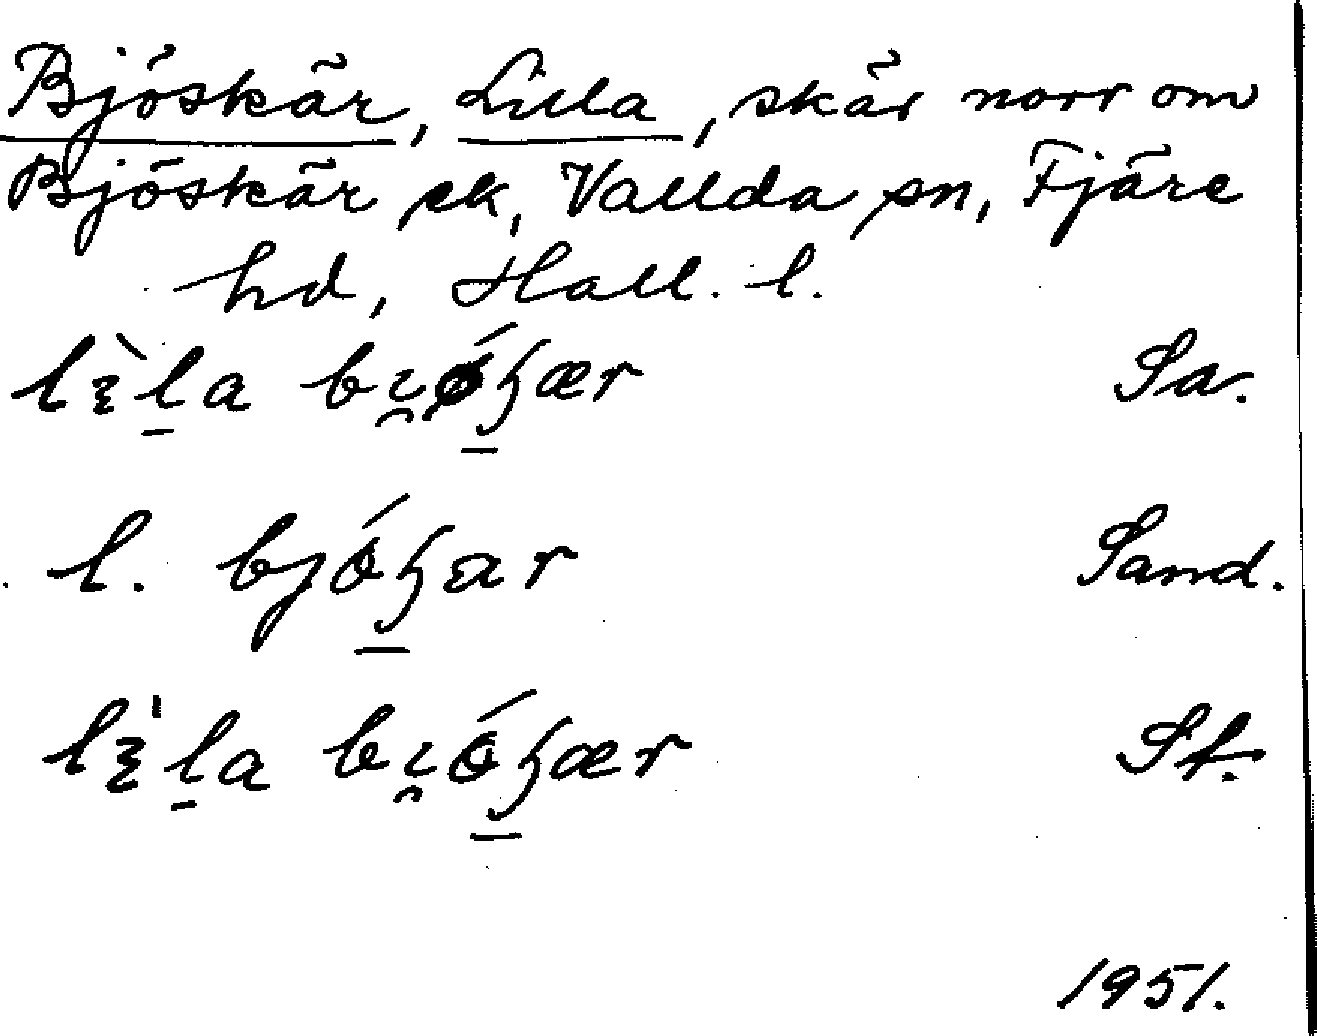 Bjöskär, Lilla, skär norr om
Bjöskär ek, Vallda sn, Fjäre
hd, Hall. l.
lɛ̀l̠a bı̯ǿꜧ̠ær Sa.
l. bjóꜧ̠ar Sand.
lɛ̍l̠a bı̯óꜧ̠ær St.
1951.